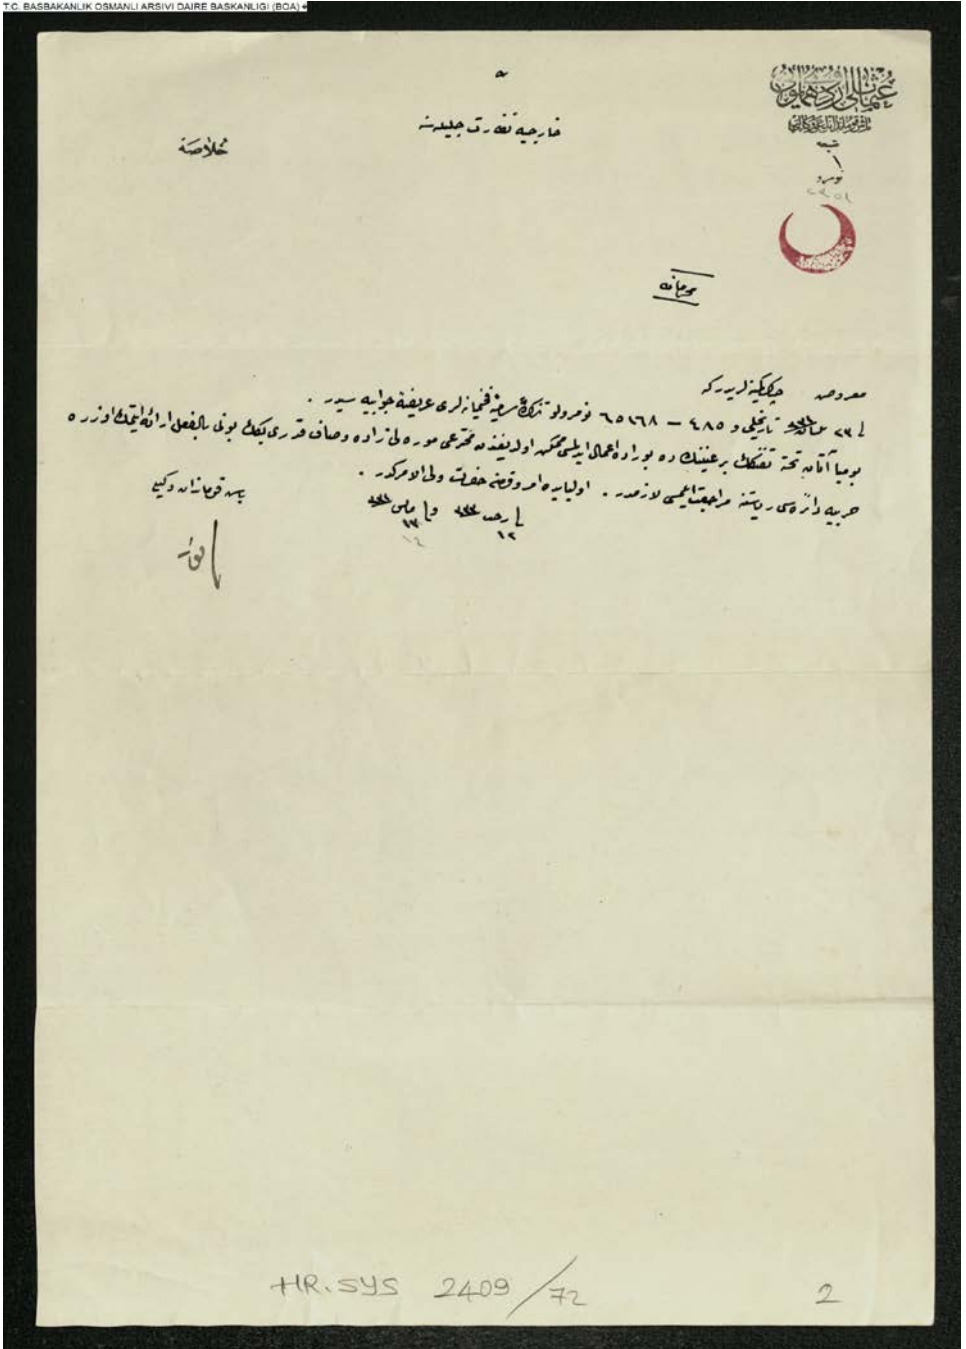 T.C. BASBAKANLIK OSMANLI ARSIVI DAIRE BASKANLIGI (BOA)
عثمانلى اردوى همايونى
باش قوماندانلغى وكالتى
شعبه
١
نومرو
خارجيه نظارت جليله سنه
خلاصه
محرمانه
معروض چاكركمينه لريدركه
فى ٢٣ تاريخلى و ٤٨٥ — ٦٥١٦٨ نومرولو تذكرهٔ فخيمانه لرى عريضهٔ جوابيه سيدر .
بومبا آتان تحته تفنكك بر عيننك ده بوراده اعمال ايدلمسى ممكن اولديغندن مخترعى موره لى زاده وصاف قدرى بكك بونى بالفعل ارائه ايتمك اوزره
حربيه دائره سى رياستنه مراجعت ايتمسى لازمدر . اولبابده امر وفرمان حضرت ولى الامركدر .
فى رجب ٣٣ وفى مايس ٣٣١
١٢ ١٣
١٤
باش قوماندان وكيلى
HR.SYS 2409/72
2